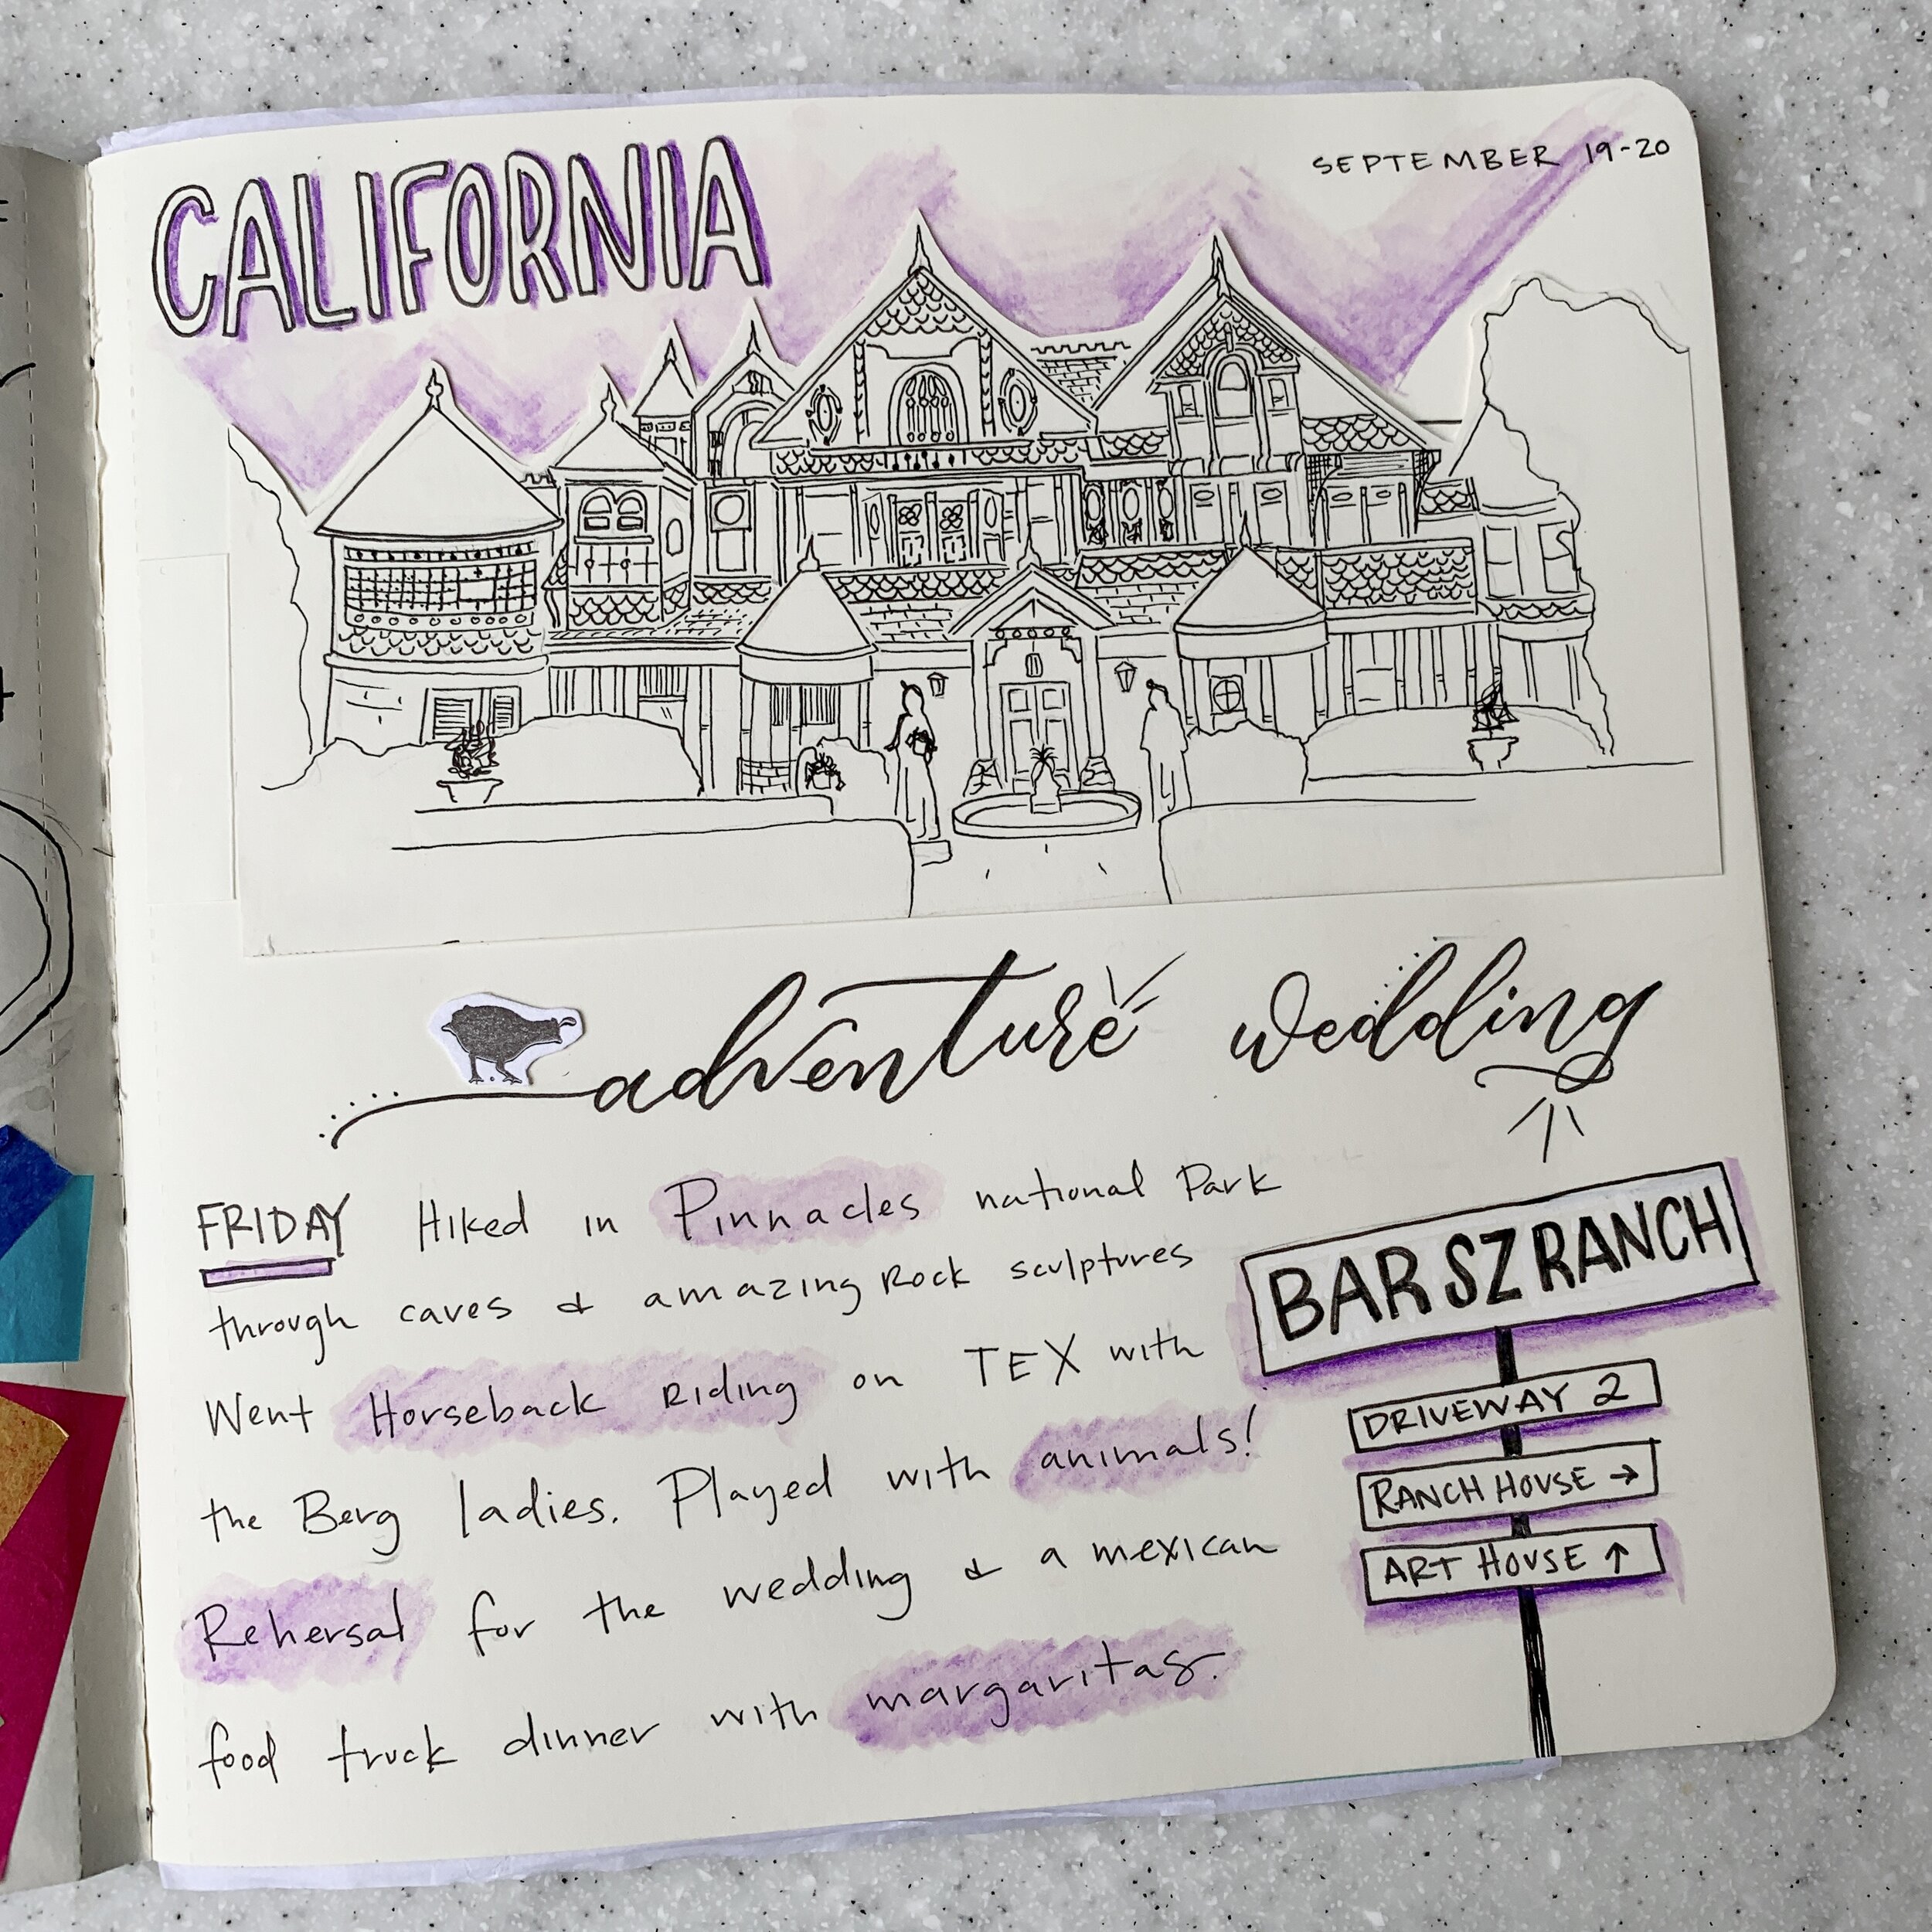 CALIFORNIA
SEPTEMBER 19-20
adventure wedding
FRIDAY Hiked in Pinnacles national Park
through caves & amazing Rock sculptures
Went Horseback Riding on TEX with
the Berg ladies. Played with animals!
Rehersal for the wedding & a mexican
food truck dinner with margaritas.
BAR SZ RANCH
DRIVEWAY 2
RANCH HOUSE →
ART HOUSE ↑